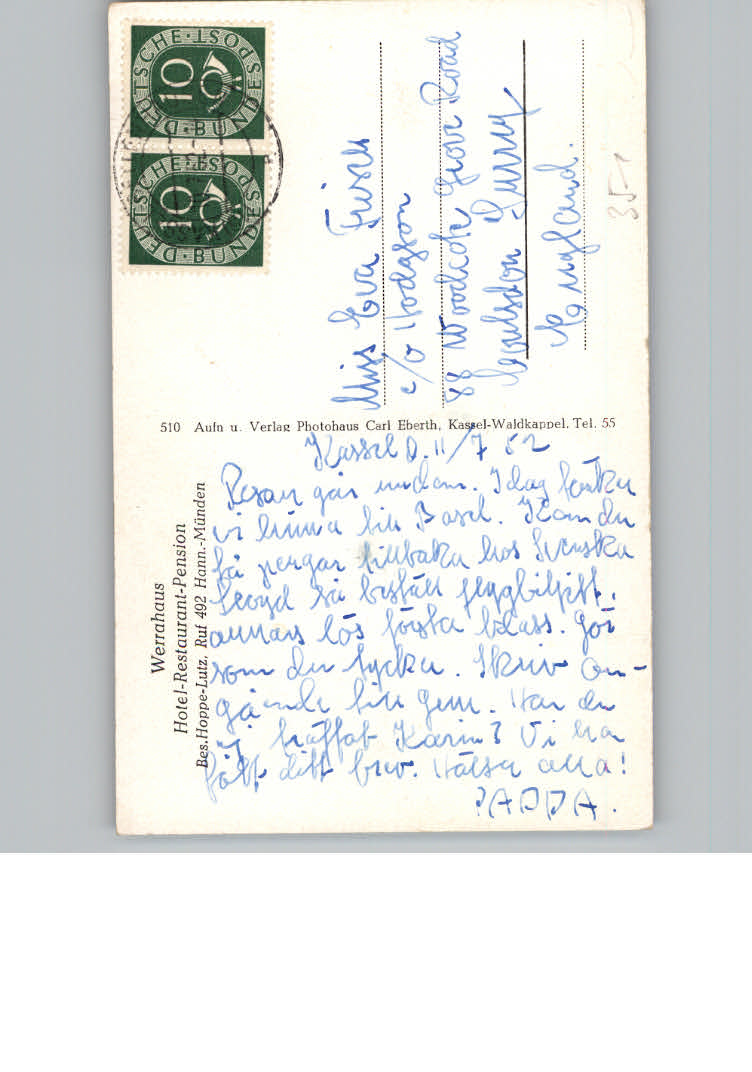 Werrahaus
Hotel-Restaurant-Pension
Bes.Hoppe-Lutz, Ruf 492 Hann.-Münden
Kassel D. 11/7 52
Resan går undan. I dag tänker
vi hinna till Basel. Kan du
få pengar tillbaka hos Svenska
Lloyd så beställ flygbiljett.
annars lös första klass. Gör
som du tycker. Skriv an-
gående till Genf. Har du
ej träffat Karin? Vi har
fått ditt brev. Hälsa alla!
PAPPA.
510 Aufn u. Verlag Photohaus Carl Eberth, Kassel-Waldkappel. Tel. 55
DEUTSCHE·POST
·BUNDESPOST
10
DEUTSCHE·POST
·BUNDESPOST
10
Miss Eva Frisch
c/o Hodgson
88 Woodcote Grove Road
Coulsdon Surrey
England.
35-